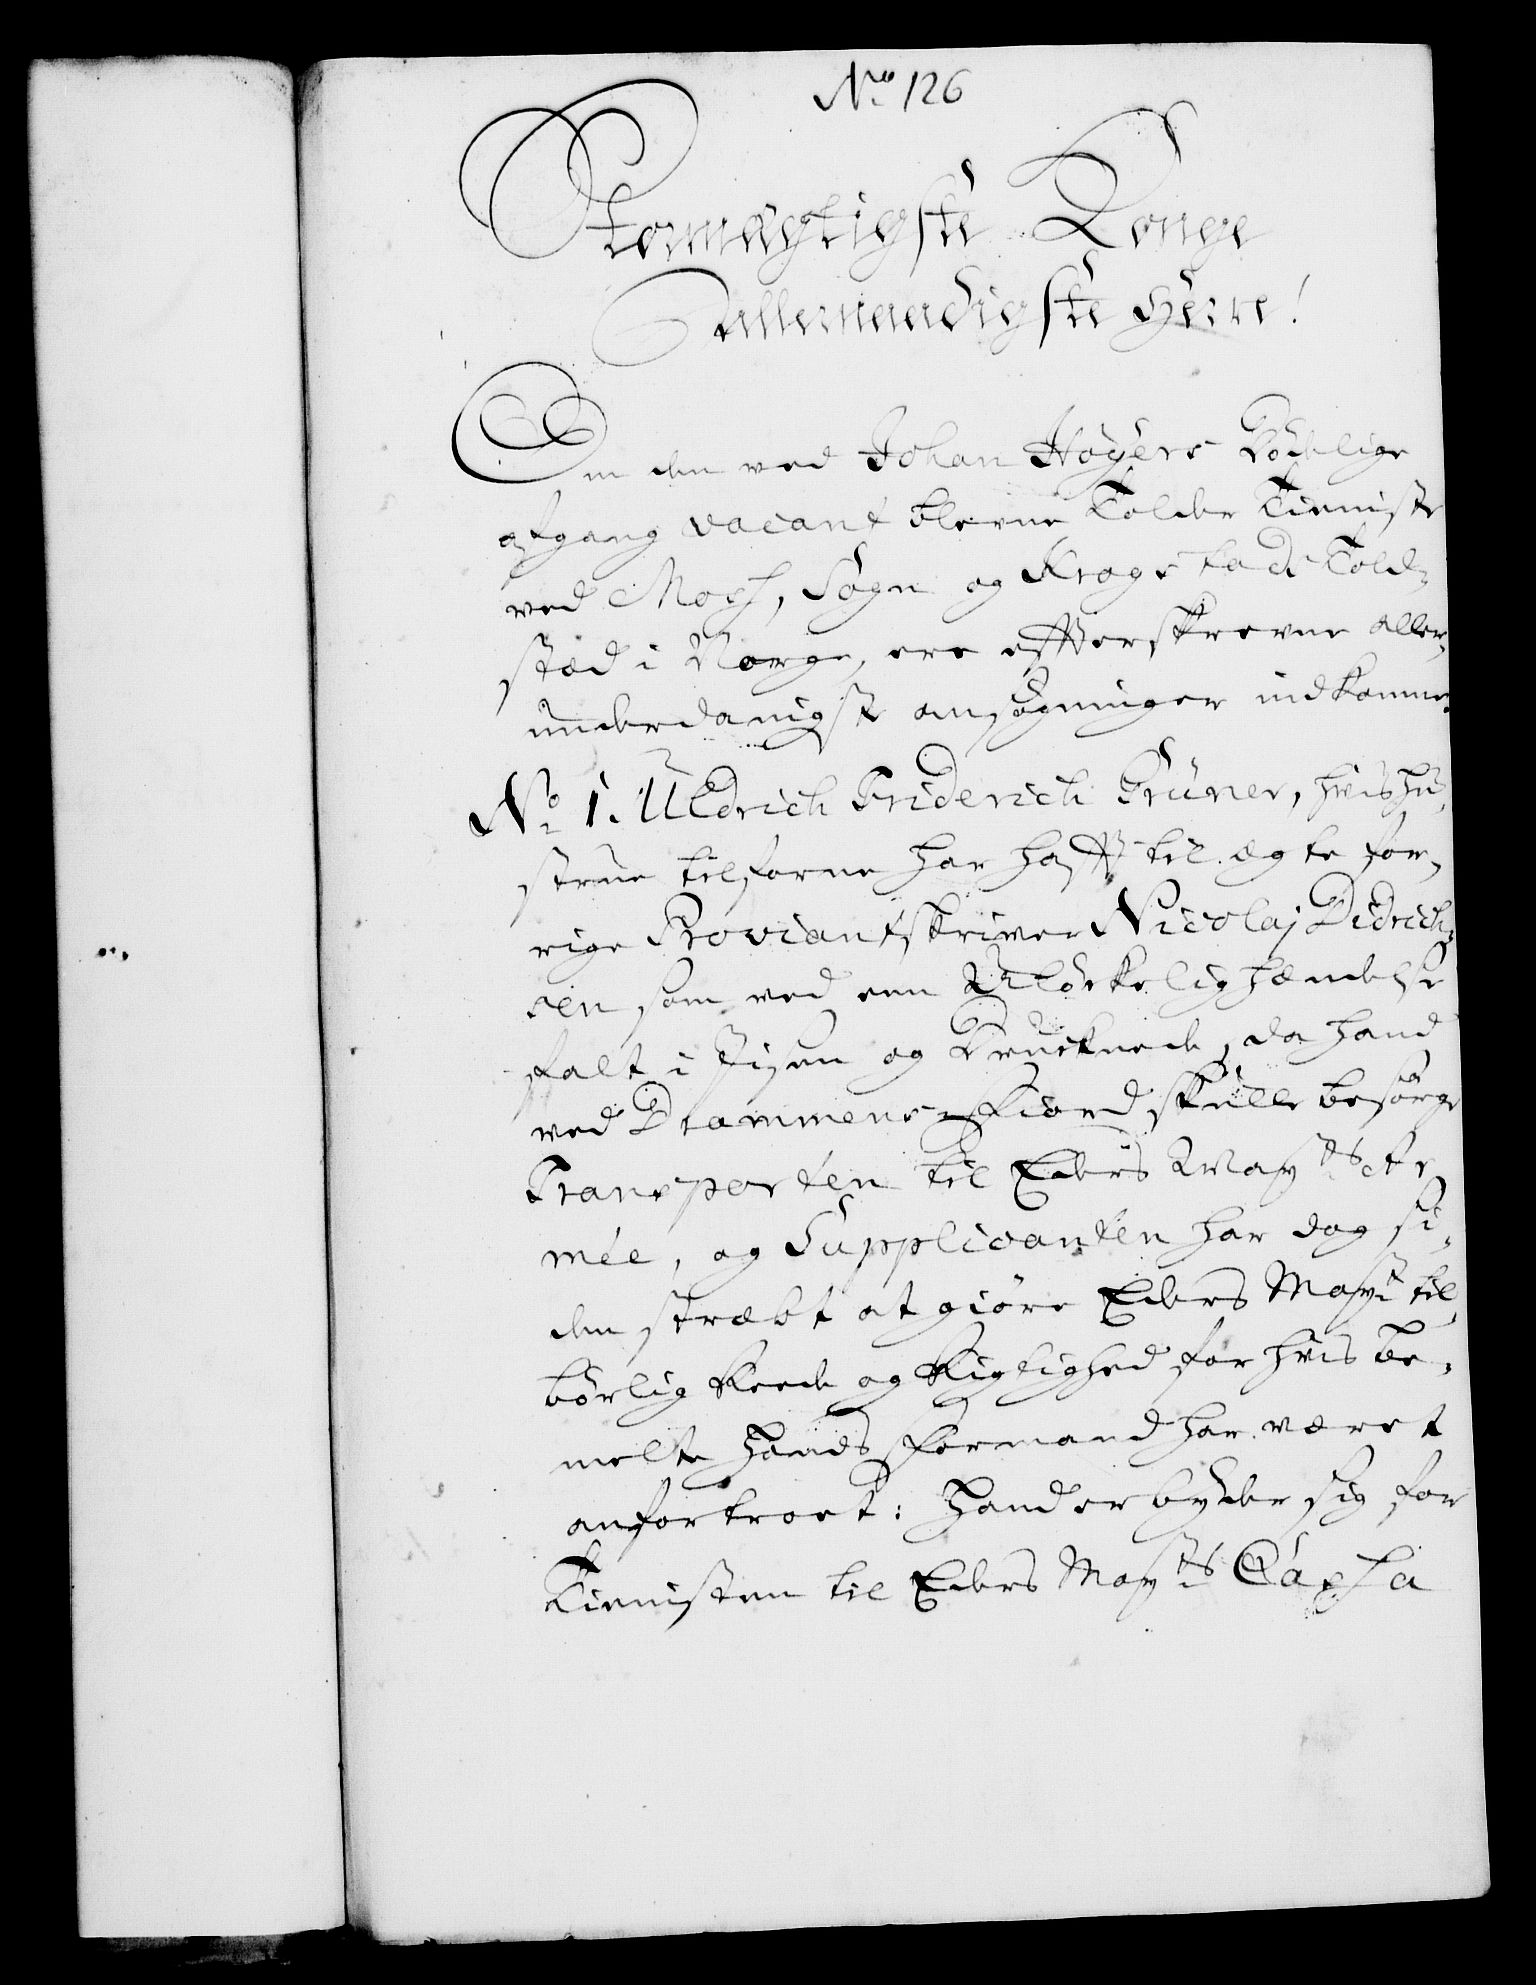 No 126
Stormægtigste Konge
allernaadigste Herre!
Om den ved Johan Høÿers Dödelige
afgang vacant blevne Tolder Tieniste
ved Moss, Sögn og Krogstads Told-
stæd i Norge, ere effterskrevne aller-
underdanigste ansögninger indkomne.
No 1. Uldrich Friderich Grüner, hvis hu-
strue tilforne har hafft til ægte for-
rige Proviantskriver Nicolaj Didrich-
sen som ved een Ulÿckelig hændelse
falt i Jisen og Drucknede, da hand
ved Drammens Fiord skulle besörge
Transporten til Eders Mayts Ar-
mée, og Supplicanten har dog si-
den stræbt at giöre Eders Mayt til-
börlig Reede og Rigtighed for hvis be-
melte hands Formand har været
anfortroet: Hand erbyder sig for
Tienisten til Eders Mayts Cassa